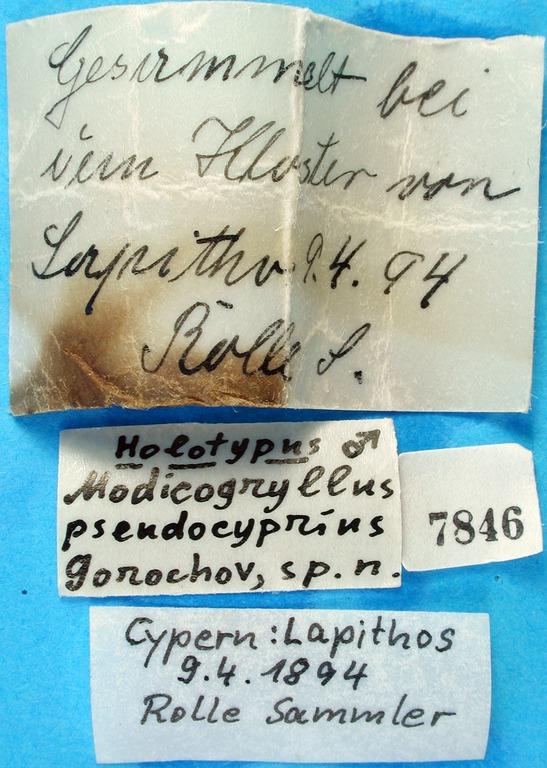 Gesammelt bei
dem Kloster von
Lapitho 9.4.94
Rolle S.
Holotypus ♂
Modicogryllus
pseudocyprius
Gorochov, sp. n.
7846
Cypern: Lapithos
9.4.1894
Rolle Sammler